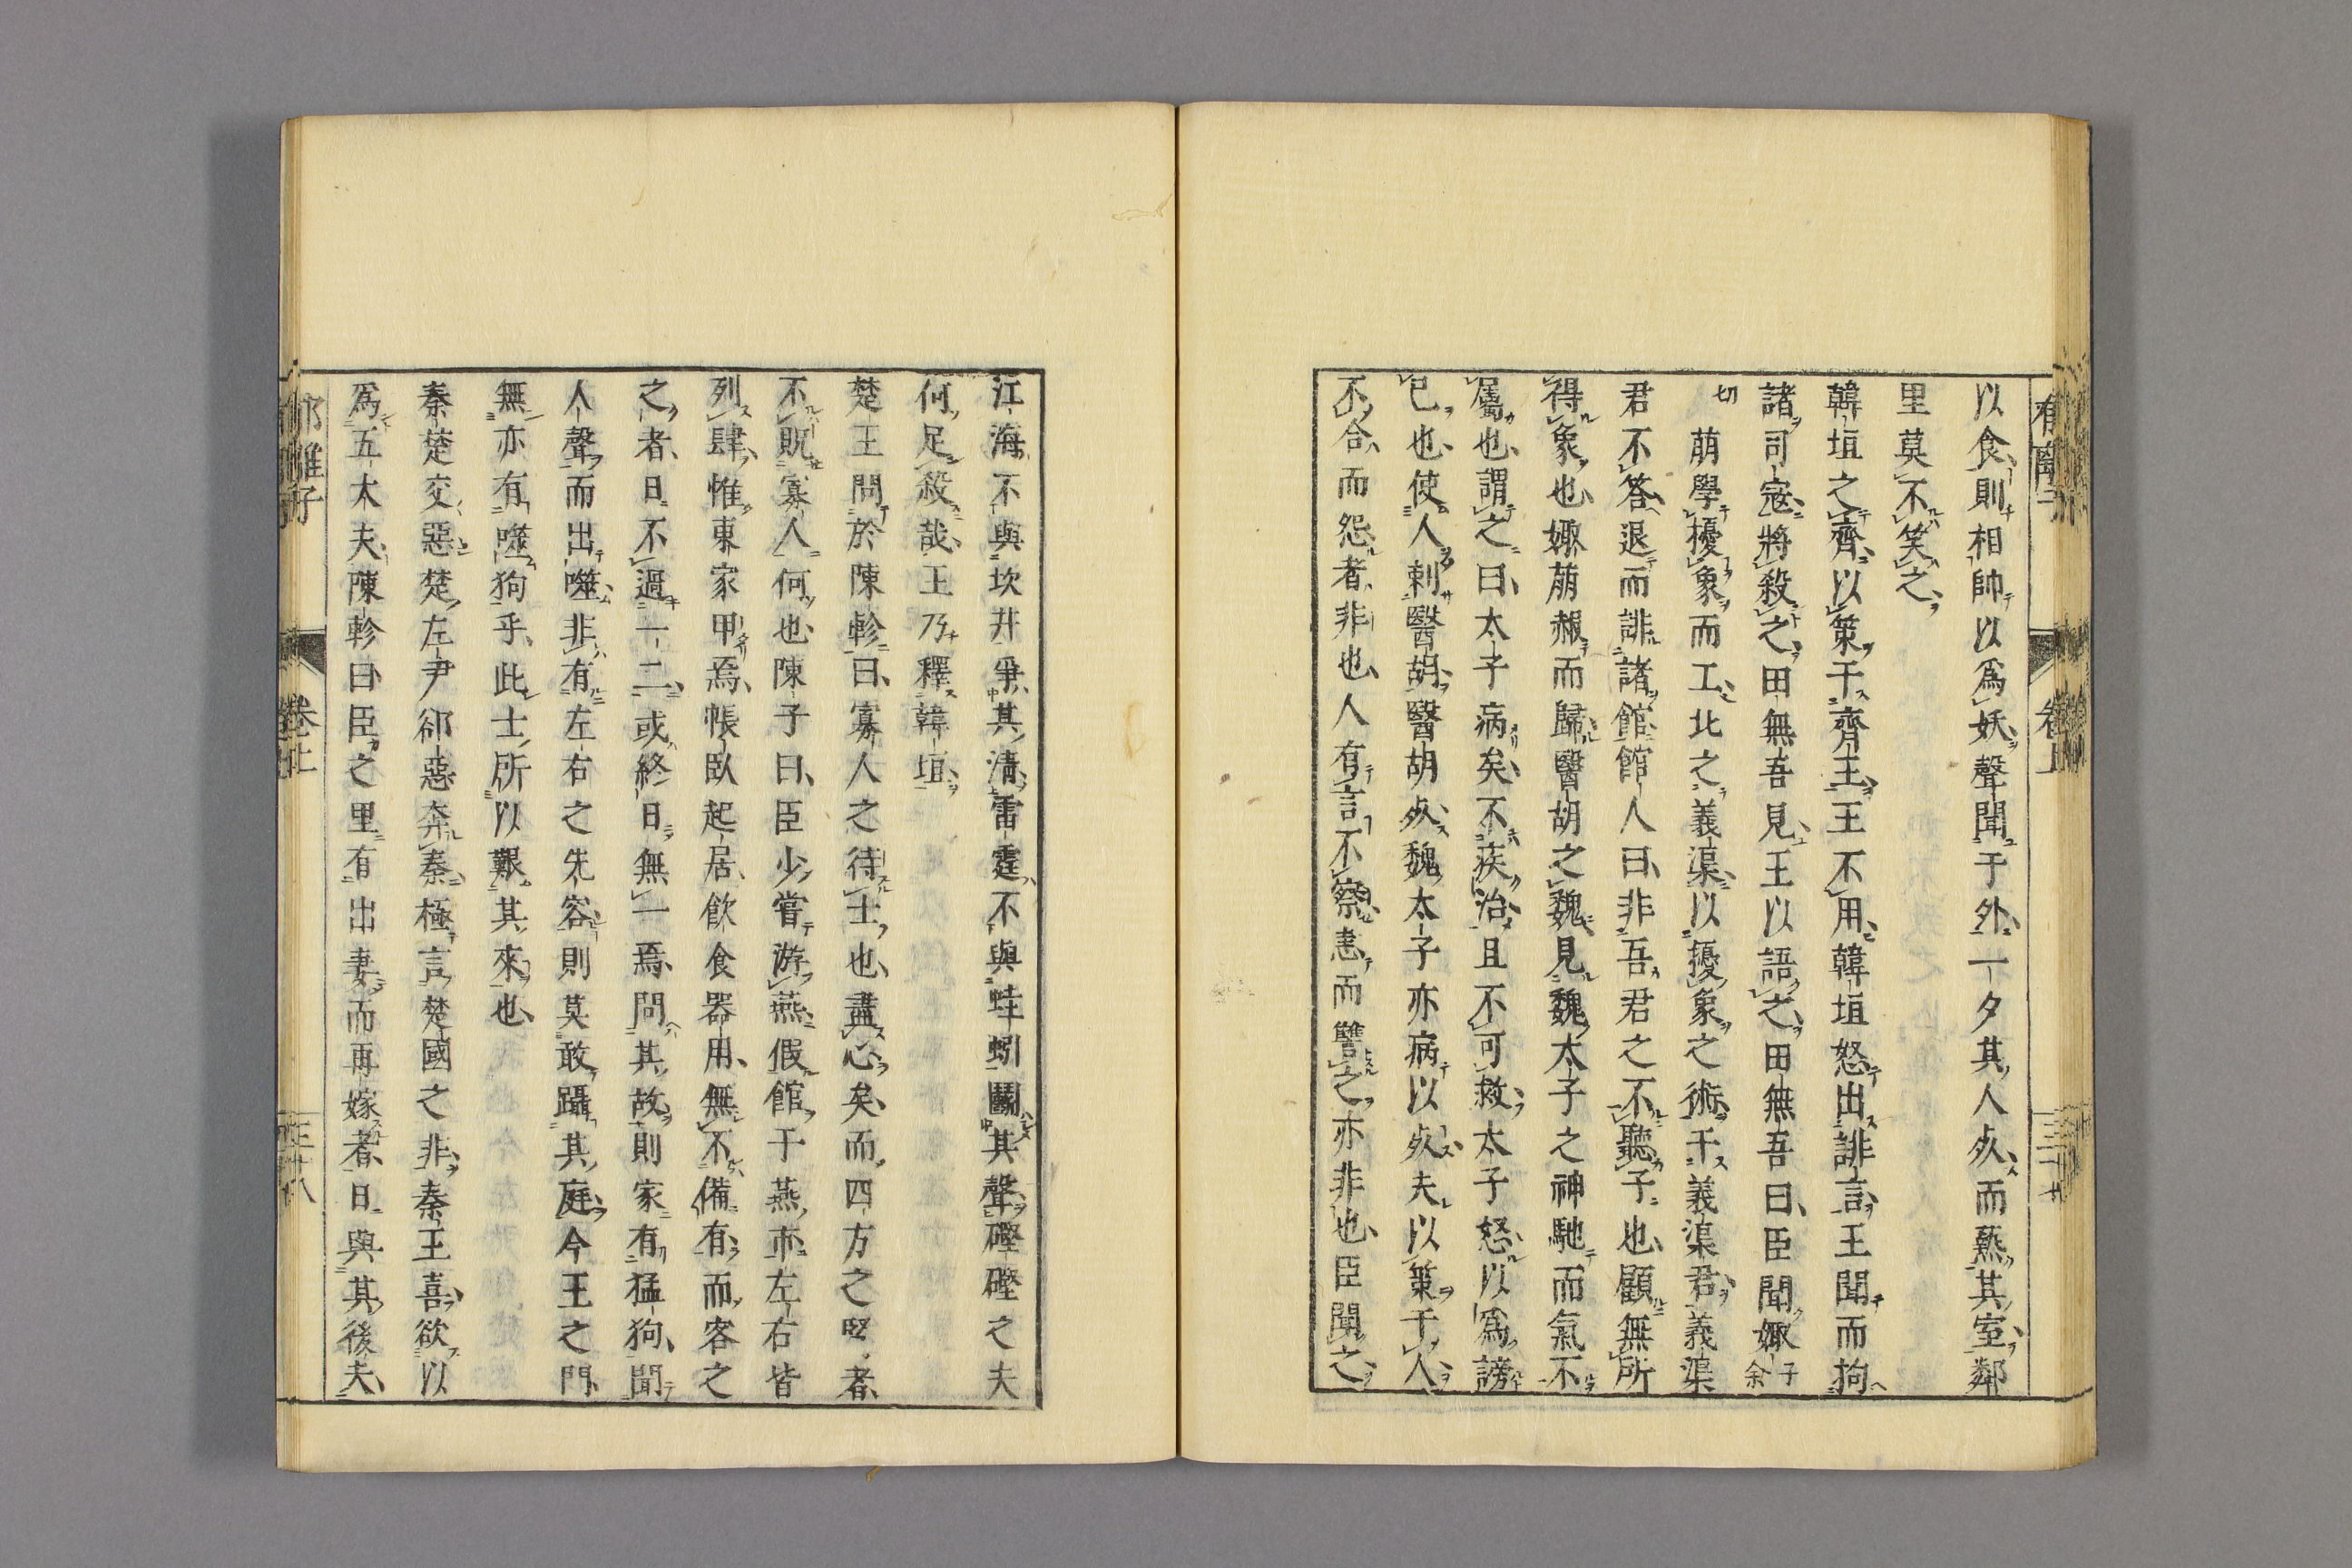 以食則相帥以爲妖聲聞于外一夕其人死而爇其室鄰
里莫不笑之
韓垣之齊以策干齊王王不用韓垣怒出誹言王聞而拘
諸司寇將殺之田無吾見王以語之田無吾曰臣聞娵子余
切萠學擾象而工北之義渠以擾象之術干義渠君義渠
君不答退而誹諸館館人曰非吾君之不聽子也顧無所
得象也娵萠赧而歸醫胡之魏見魏太子之神馳而氣不
屬也謂之曰太子病矣不疾治且不可救太子怒以爲謗
已也使人刺醫胡醫胡死魏太子亦病以死夫以策干人
不合而怨者非也人有言不察恚而讐之亦非也臣聞之
江海不與坎井爭其清雷霆不與蛙蚓鬭其聲硜硜之夫
何足殺哉王乃釋韓垣
楚王問於陳軫曰寡人之待士也盡心矣而四方之賢者
不貺寡人何也陳子曰臣少嘗游燕假館于燕市左右皆
列肆惟東家甲焉帳臥起居飲食器用無不備有而客之
之者日不過一二或終日無一焉問其故則家有猛狗聞
人聲而出噬非有左右之先容則莫敢躡其庭今王之門
無亦有噬狗乎此士所以艱其來也
秦楚交惡楚左尹郤惡奔秦極言楚國之非秦王喜欲以
爲五大夫陳軫曰臣之里有出妻而再嫁者日與其後夫
郁離子
卷上
三十八